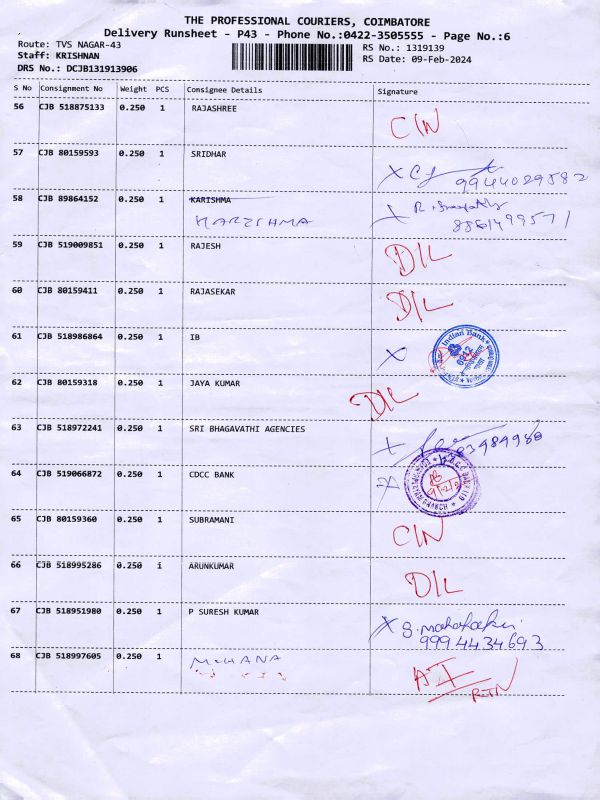 THE PROFESSIONAL COURIERS, COIMBATORE
Delivery Runsheet - P43 - Phone No.:0422-3505555 - Page No.:6
Route: TVS NAGAR-43
RS No.: 1319139
Staff: KRISHNAN
RS Date: 09-Feb-2024
DRS No.: DCJB131913906
S No Consignment No Weight PCS Consignee Details Signature
56 CJB 518875133 0.250 1 RAJASHREE
C/N
57 CJB 80159593 0.250 1 SRIDHAR
X
9944029582
58 CJB 89864152 0.250 1 KARISHMA
KARISHMA
X R.
8861499571
59 CJB 519009851 0.250 1 RAJESH
D/L
60 CJB 80159411 0.250 1 RAJASEKAR
D/L
61 CJB 518986864 0.250 1 IB
X Indian Bank
62 CJB 80159318 0.250 1 JAYA KUMAR
D/L
63 CJB 518972241 0.250 1 SRI BHAGAVATHI AGENCIES
64 CJB 519066872 0.250 1 CDCC BANK
X
65 CJB 80159360 0.250 1 SUBRAMANI
C/N
66 CJB 518995286 0.250 i ARUNKUMAR
D/L
67 CJB 518951980 0.250 1 P SURESH KUMAR
X S.
9994434693
68 CJB 518997605 0.250 1 MOHANA
RTN